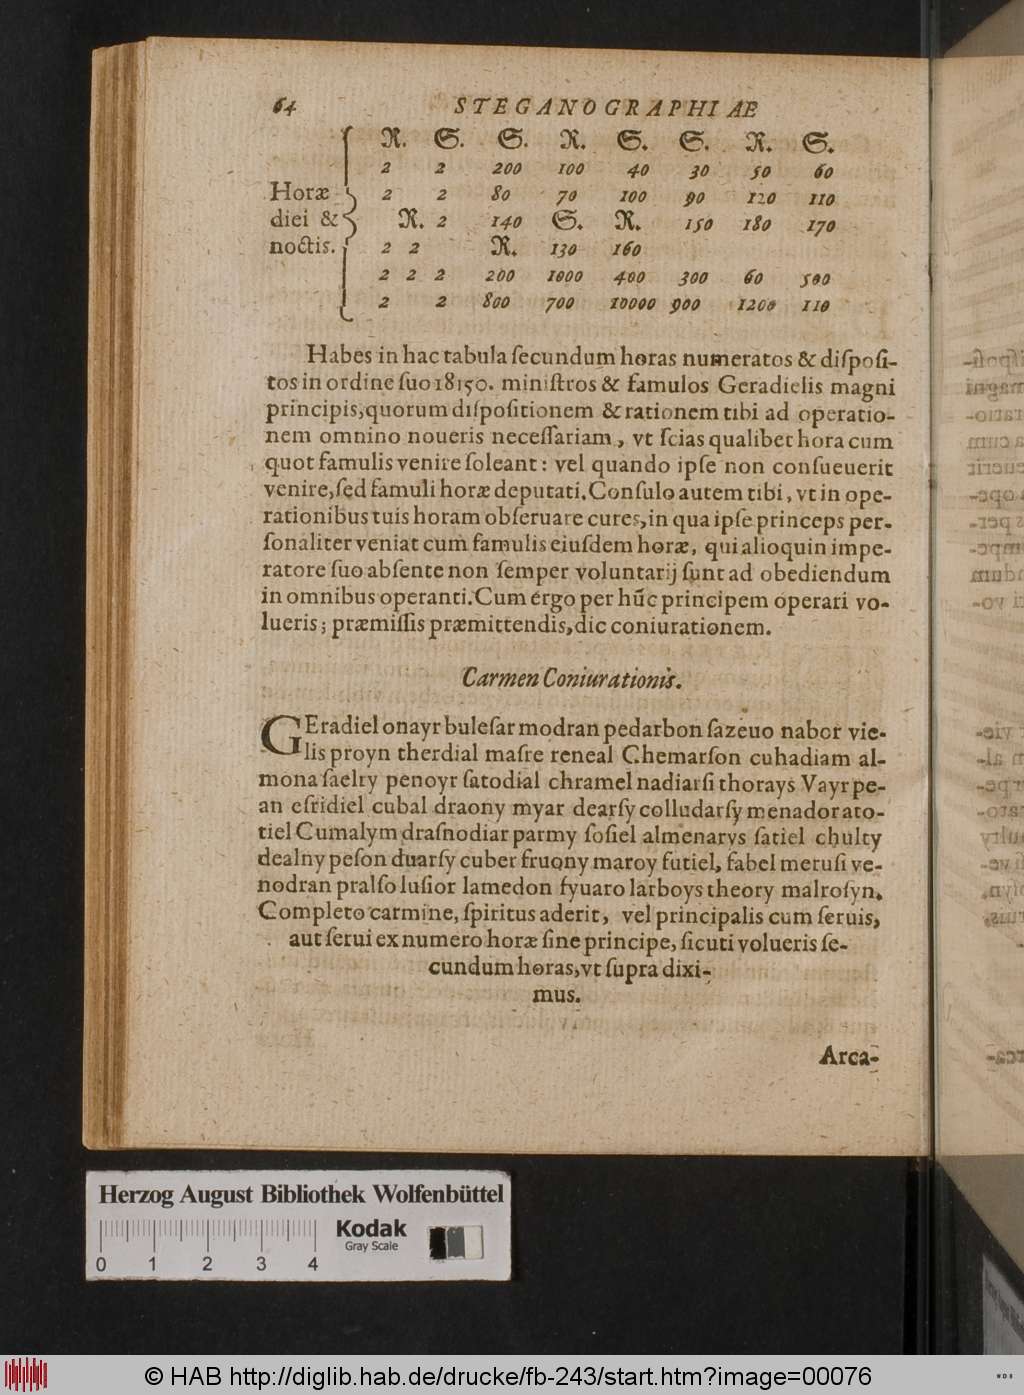 64 STEGANOGRAPHIAE
R. S. S. R. S. S. R. S.
2 2 200 100 40 30 50 60
Horæ 2 2 80 70 100 90 120 110
diei & R. 2 140 S. R. 150 180 170
noctis. 2 2 R. 130 160
2 2 2 200 1000 400 300 60 500
2 2 800 700 10000 900 1200 110
Habes in hac tabula ſecundum horas numeratos & diſpoſi-
tos in ordine ſuo 18150. miniſtros & famulos Geradielis magni
principis, quorum diſpoſitionem & rationem tibi ad operatio-
nem omnino noueris neceſſariam, vt ſcias qualibet hora cum
quot famulis venire ſoleant: vel quando ipſe non conſueuerit
venire, ſed famuli horæ deputati. Conſulo autem tibi, vt in ope-
rationibus tuis horam obſeruare cures, in qua ipſe princeps per-
ſonaliter veniat cum famulis eiuſdem horæ, qui alioquin impe-
ratore ſuo abſente non ſemper voluntarij ſunt ad obediendum
in omnibus operanti. Cum ergo per hũc principem operari vo-
lueris; præmiſſis præmittendis, dic coniurationem.
Carmen Coniurationis.
GEradiel onayr buleſar modran pedarbon ſazeuo nabor vie-
lis proyn therdial maſre reneal Chemarſon cuhadiam al-
mona ſaelry penoyr ſatodial chramel nadiarſi thorays Vayr pe-
an eſridiel cubal draony myar dearſy colludarſy menador ato-
tiel Cumalym draſnodiar parmy ſoſiel almenarys ſatiel chulty
dealny peſon duarſy cuber fruony maroy futiel, fabel meruſi ve-
nodran pralſo luſior lamedon fyuaro larboys theory malroſyn.
Completo carmine, ſpiritus aderit, vel principalis cum ſeruis,
aut ſerui ex numero horæ ſine principe, ſicuti volueris ſe-
cundum horas, vt ſupra dixi-
mus.
Arca-
Herzog August Bibliothek Wolfenbüttel
Kodak
Gray Scale
0 1 2 3 4
© HAB http://diglib.hab.de/drucke/fb-243/start.htm?image=00076